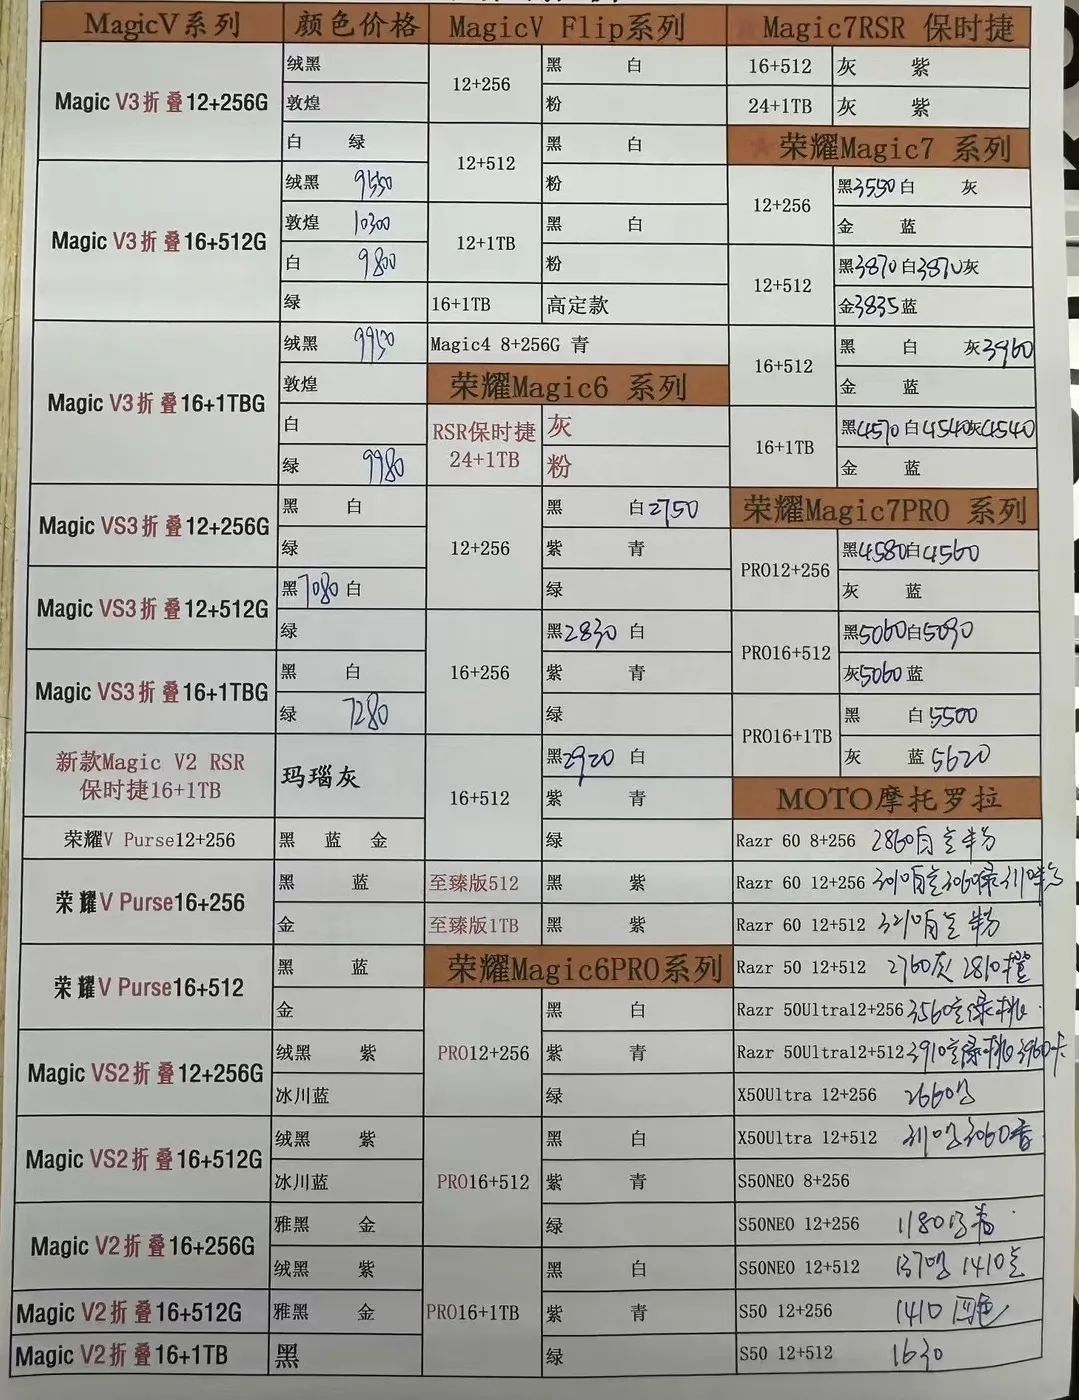 MagicV系列
颜色价格
Magic V3折叠12+256G
绒黑
敦煌
白 绿
Magic V3折叠16+512G
绒黑 9550
敦煌 10300
白 9800
绿
Magic V3折叠16+1TBG
绒黑 9950
敦煌
白
绿 9980
Magic VS3折叠12+256G
黑 白
绿
Magic VS3折叠12+512G
黑7080白
绿
Magic VS3折叠16+1TBG
黑 白
绿 7280
新款Magic V2 RSR
保时捷16+1TB
玛瑙灰
荣耀V Purse12+256
黑 蓝 金
荣耀V Purse16+256
黑 蓝
金
荣耀V Purse16+512
黑 蓝
金
Magic VS2折叠12+256G
绒黑 紫
冰川蓝
Magic VS2折叠16+512G
绒黑 紫
冰川蓝
Magic V2折叠16+256G
雅黑 金
绒黑 紫
Magic V2折叠16+512G
雅黑 金
Magic V2折叠16+1TB
黑
MagicV Flip系列
12+256
黑 白
粉
12+512
黑 白
粉
12+1TB
黑 白
粉
16+1TB
高定款
Magic4 8+256G 青
荣耀Magic6 系列
RSR保时捷
24+1TB
灰
粉
12+256
黑 白2750
紫 青
绿
16+256
黑2830 白
紫 青
绿
16+512
黑2920 白
紫 青
绿
至臻版512
黑 紫
至臻版1TB
黑 紫
荣耀Magic6PRO系列
PRO12+256
黑 白
紫 青
绿
PRO16+512
黑 白
紫 青
绿
PRO16+1TB
黑 白
紫 青
绿
Magic7RSR 保时捷
16+512
灰 紫
24+1TB
灰 紫
荣耀Magic7 系列
12+256
黑3550白 灰
金 蓝
12+512
黑3870白3870灰
金3835蓝
16+512
黑 白 灰3960
金 蓝
16+1TB
黑4570白4540灰4540
金 蓝
荣耀Magic7PRO 系列
PRO12+256
黑4580白4560
灰 蓝
PRO16+512
黑5060白5090
灰5060蓝
PRO16+1TB
黑 白5500
灰 蓝5620
MOTO摩托罗拉
Razr 60 8+256 2860
Razr 60 12+256 3010
Razr 60 12+512 3210 粉
Razr 50 12+512 2760灰 2810橙
Razr 50Ultra12+256 3560 绿 桃
Razr 50Ultra12+512 3910 绿 桃 3960
X50Ultra 12+256 2660
X50Ultra 12+512 3110 3060
S50NEO 8+256
S50NEO 12+256 1180
S50NEO 12+512 1370 1410
S50 12+256 1410 四色
S50 12+512 1630